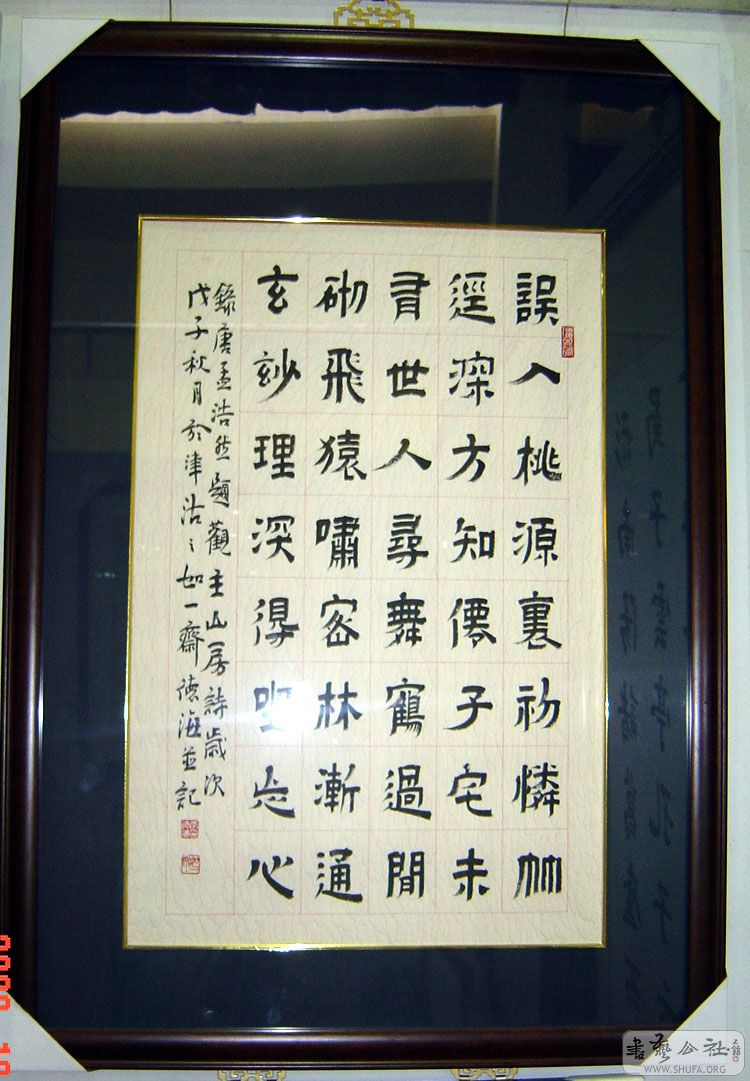 誤入桃源裏初憐竹
逕深方知僊子宅未
有世人尋舞鶴過間
砌飛猿嘯密林漸通
玄妙理深得坐忘心
錄唐孟浩然題觀主山房詩歲次
戊子秋月於津沽之如一齋德海並記
書藝公社
WWW.SHUFA.ORG